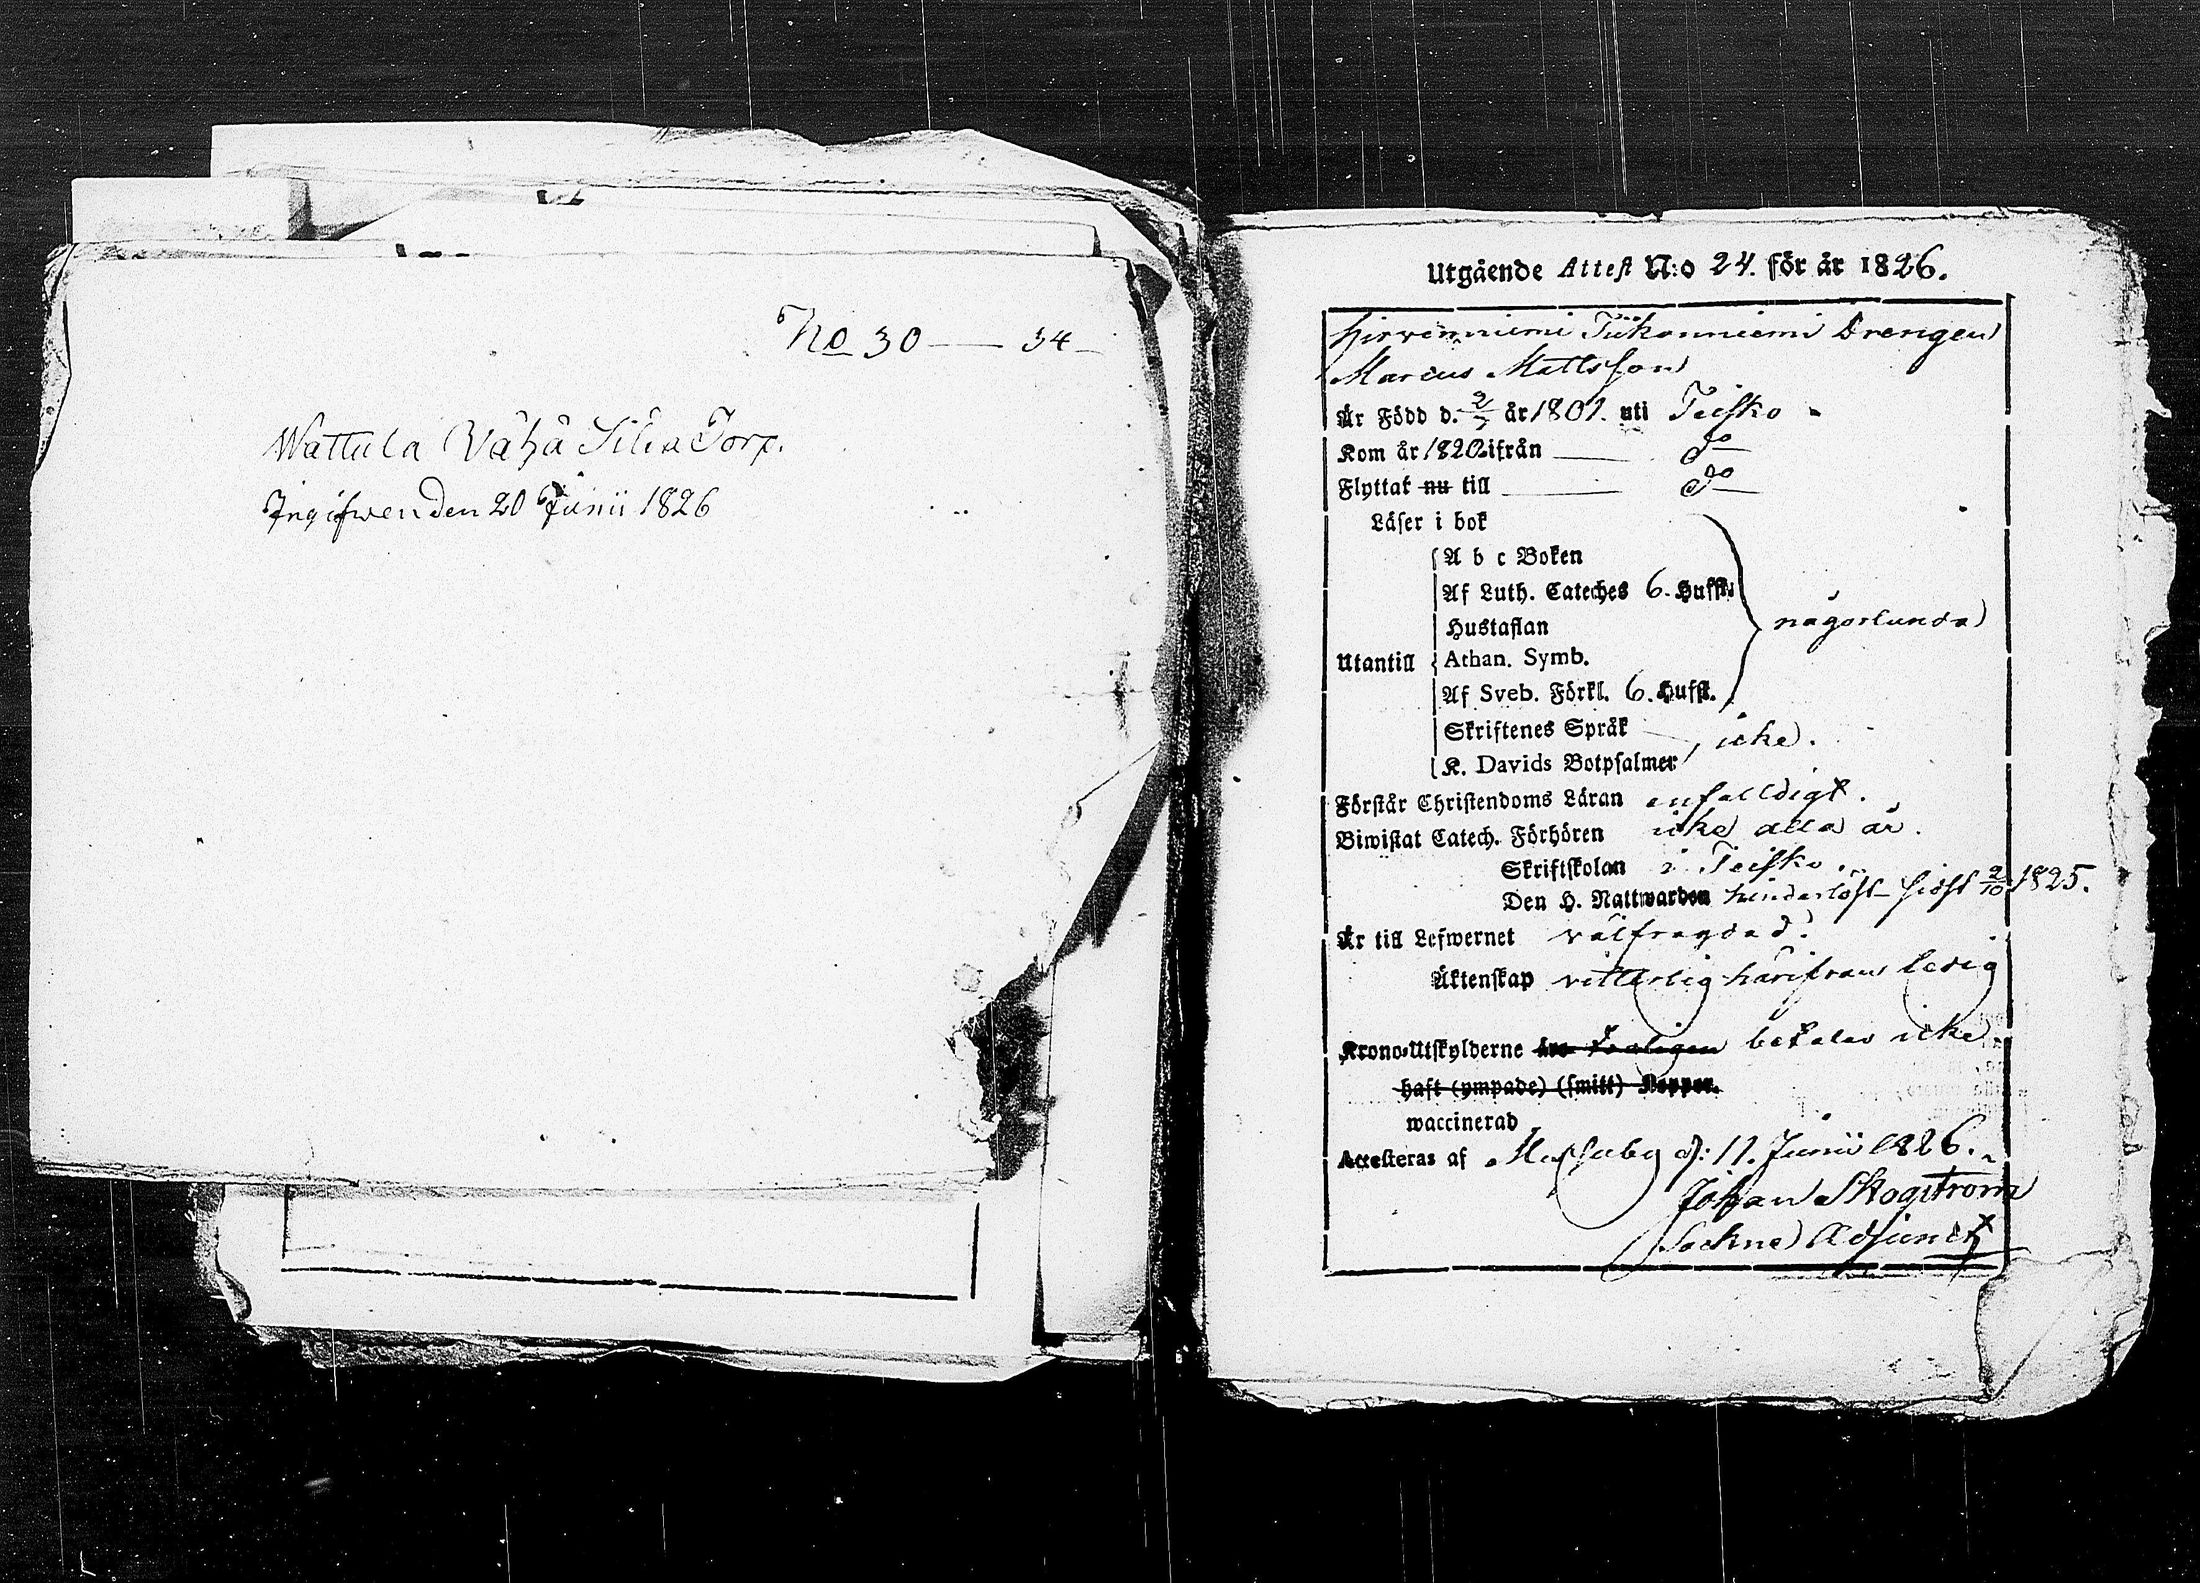 No 30 — 34
Wattula Wähä Silia Torp.
Ingifwen den 20 Junii 1826
Utgående Attest N:o 24. för år 1826.
Hirvenniemi Tiikonniemi Drengen
Marcus Mattsson
Är Född d. 2/7 år 1801. uti Teisko
Kom år 1820 ifrån — do
Flyttat nu till — do
Läser i bok
A b c Boken
Af Luth. Cateches 6. Hufst.
Hustaflan
någorlunda
Utantill Athan. Symb.
Af Sveb. Förkl. 6. Hufst.
Skriftenes Språk
icke.
K. Davids Botpsalmer
Förstår Christendoms Läran enfalldigt.
Biwistat Catech. Förhören icke alla år.
Skriftskolan i Teisko.
Den H. Nattwarden hinderlöst sidst 2/10 1825.
Är till Lefwernet välfrägdad.
Äktenskap vitterlig härifrån ledig
Krono-Utskylderne äro betalar icke
haft (ympade) (smitt) Koppor.
waccinerad
Attesteras af Messuby d: 11. Junii 1826.
Johan Skogström
Sockne Adjunct